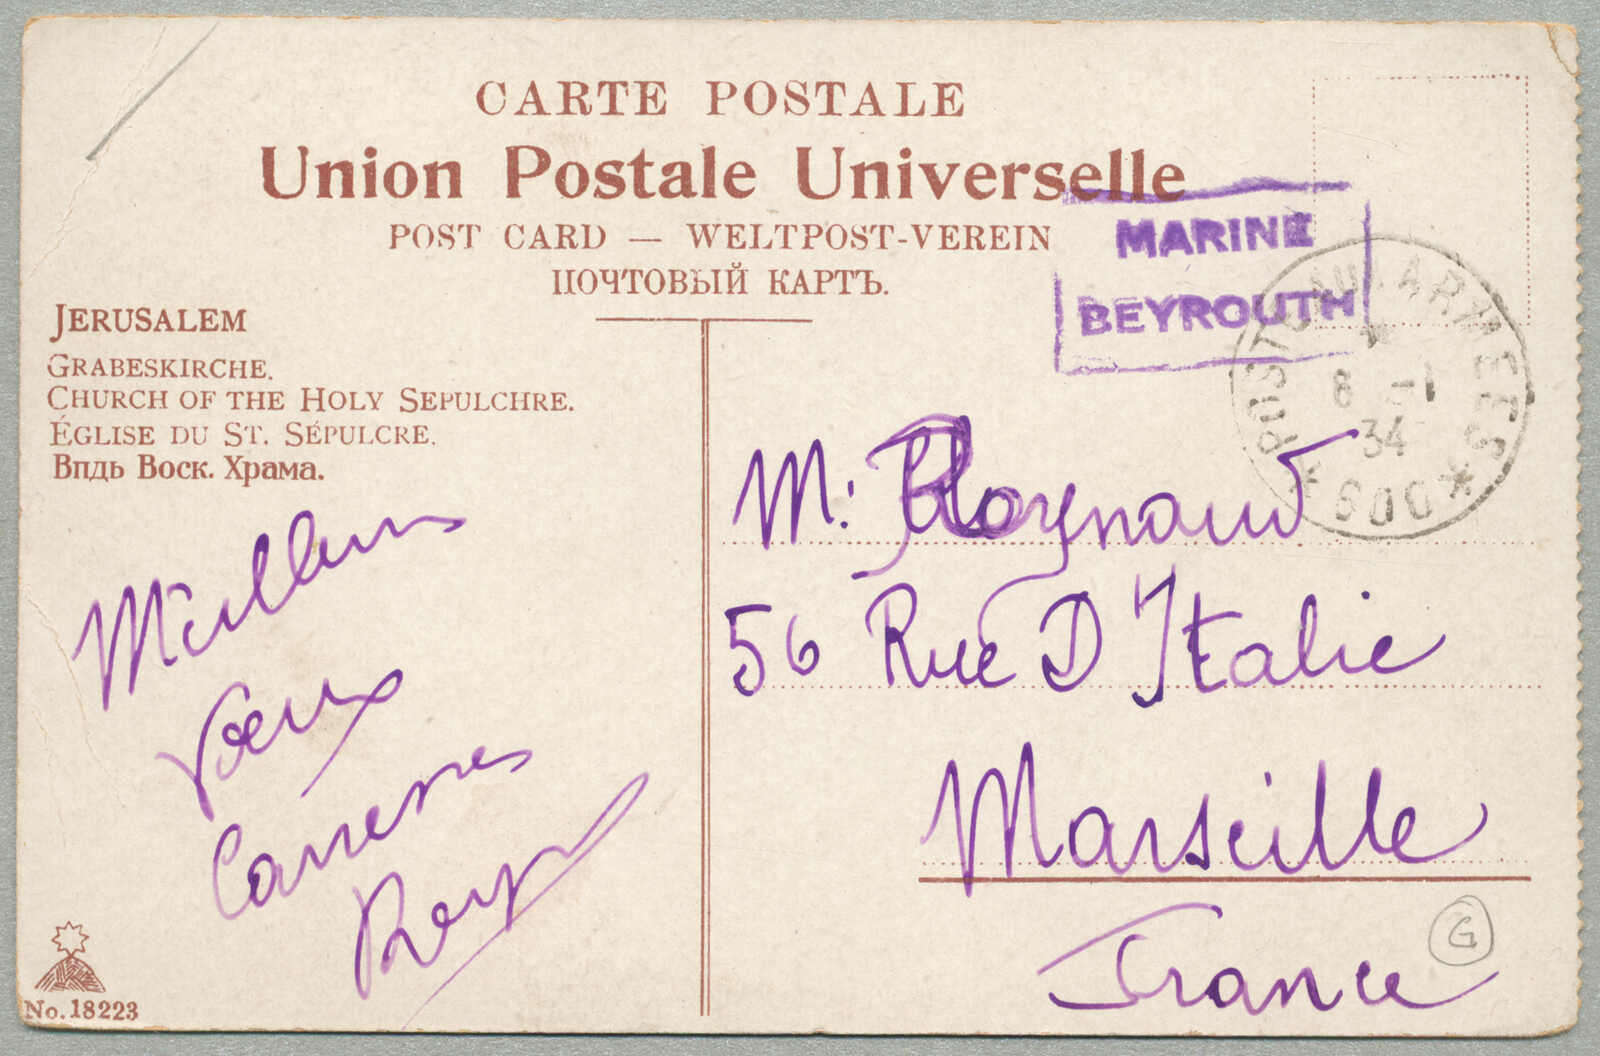 CARTE POSTALE
Union Postale Universelle
POST CARD — WELTPOST-VEREIN
ПОЧТОВЫЙ КАРТЪ.
MARINE
BEYROUTH
POSTE AUX ARMEES
8 -1
34
* 600 *
JERUSALEM
GRABESKIRCHE.
CHURCH OF THE HOLY SEPULCHRE.
ÉGLISE DU ST. SÉPULCRE.
Впдь Воск. Храма.
Meilleurs
Voeux
Caresses
M: Raynaud
56 Rue D Italie
Marseille
France
G
No. 18223